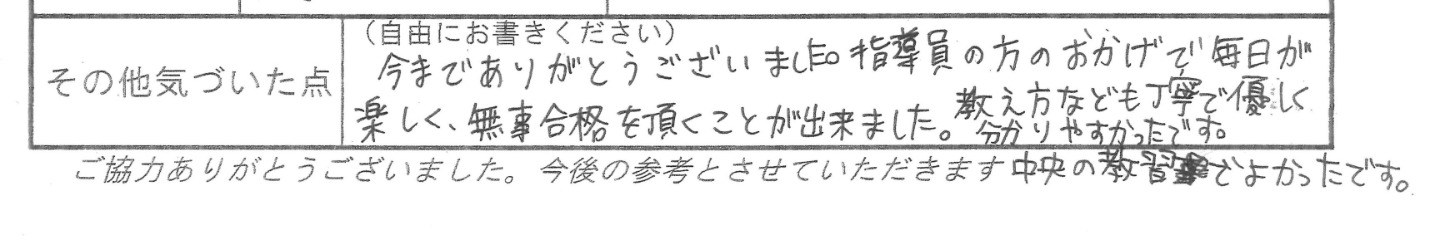 （自由にお書きください）
その他気づいた点
今までありがとうございました。指導員の方のおかげで毎日が
楽しく、無事合格を頂くことが出来ました。教え方なども丁寧で優しく
分かりやすかったです。
ご協力ありがとうございました。今後の参考とさせていただきます
中央の教習でよかったです。